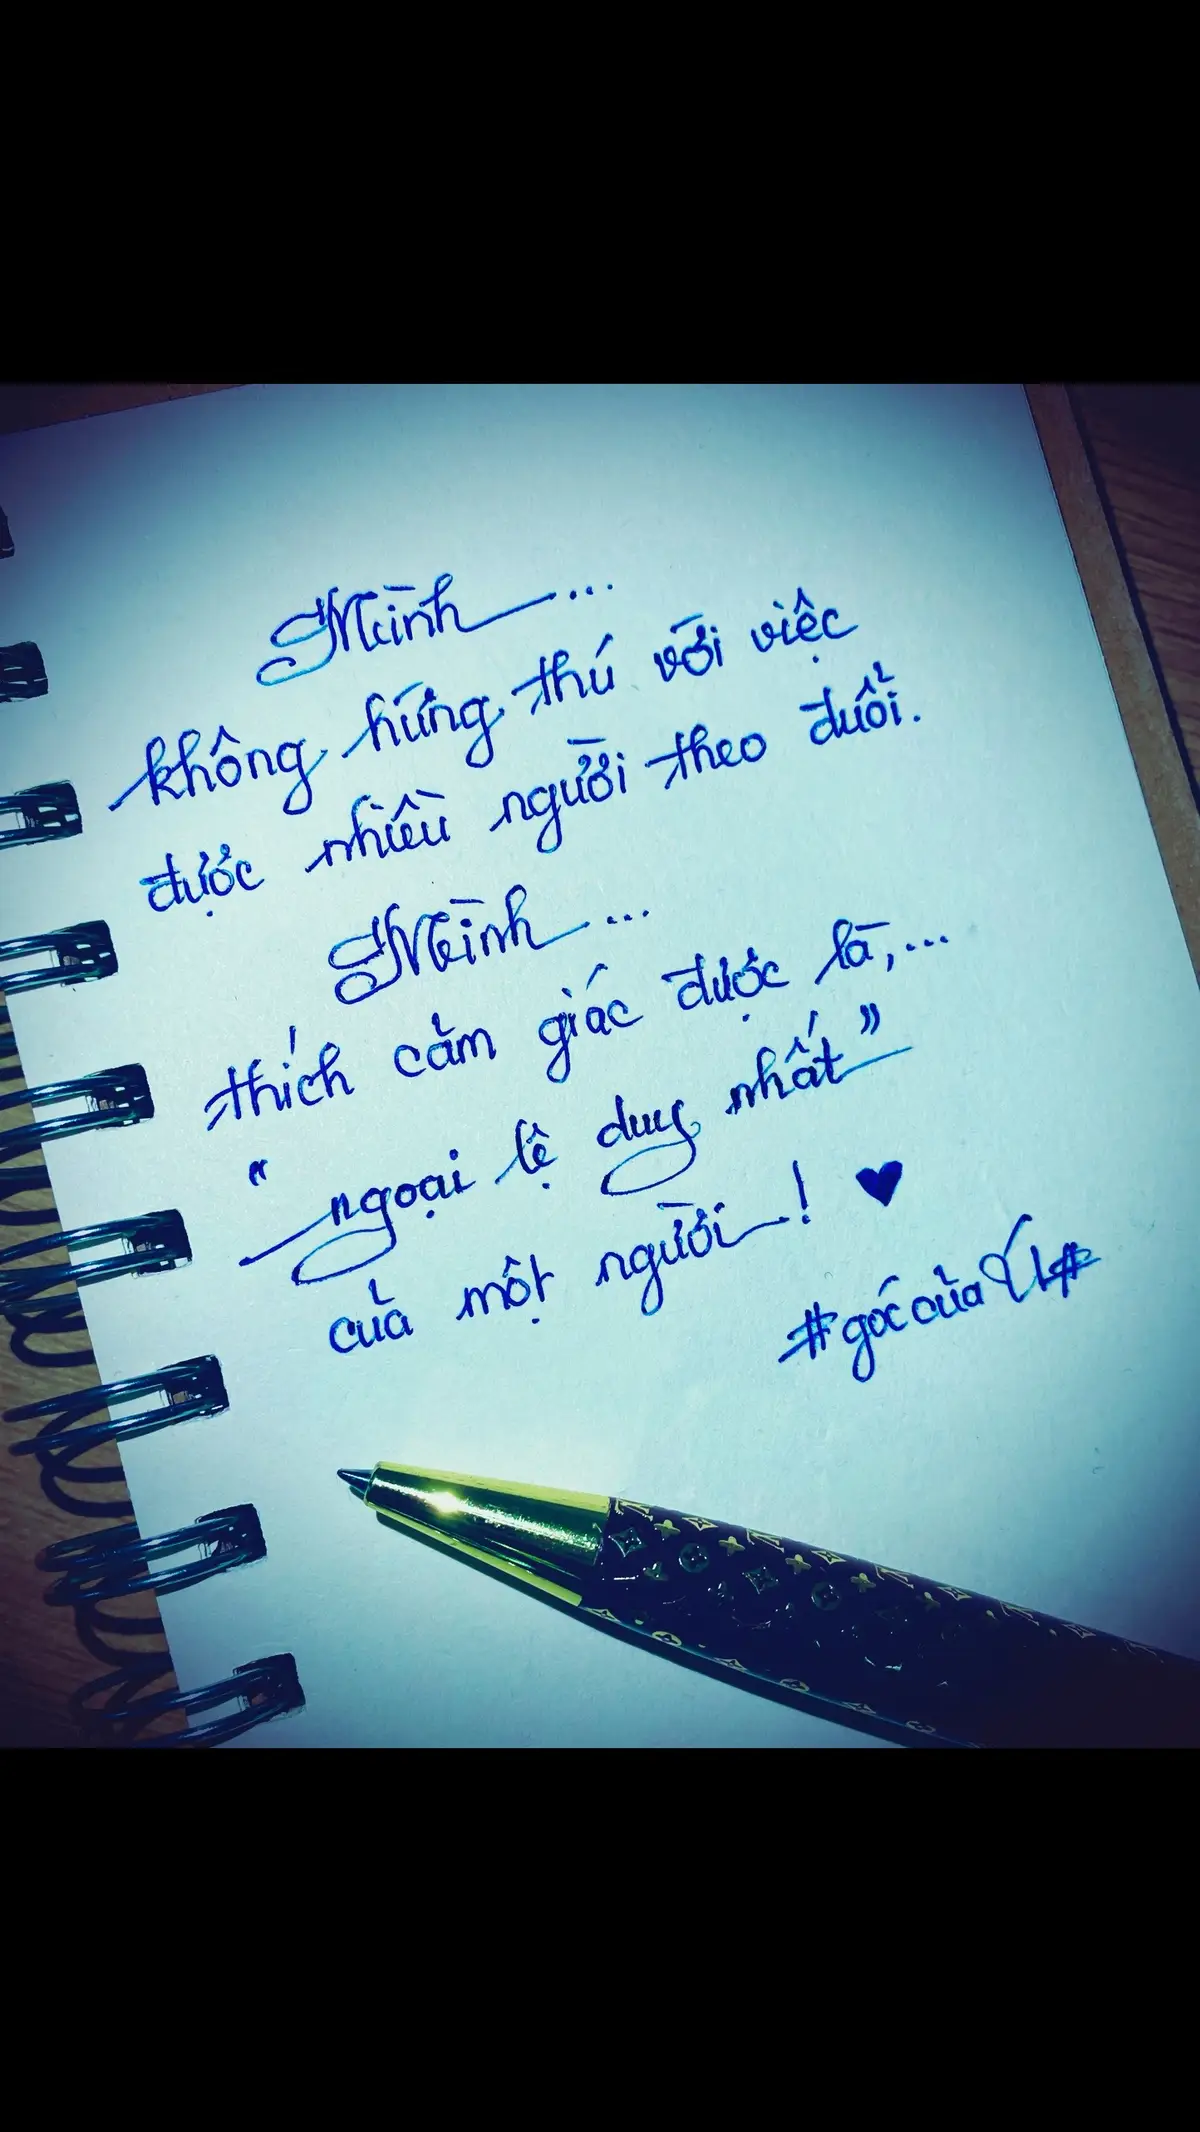 Mình...
không hứng thú với việc
được nhiều người theo đuổi.
Mình...
thích cảm giác được là,...
"ngoại lệ duy nhất"
của một người! ♥
#góccủaÚt#